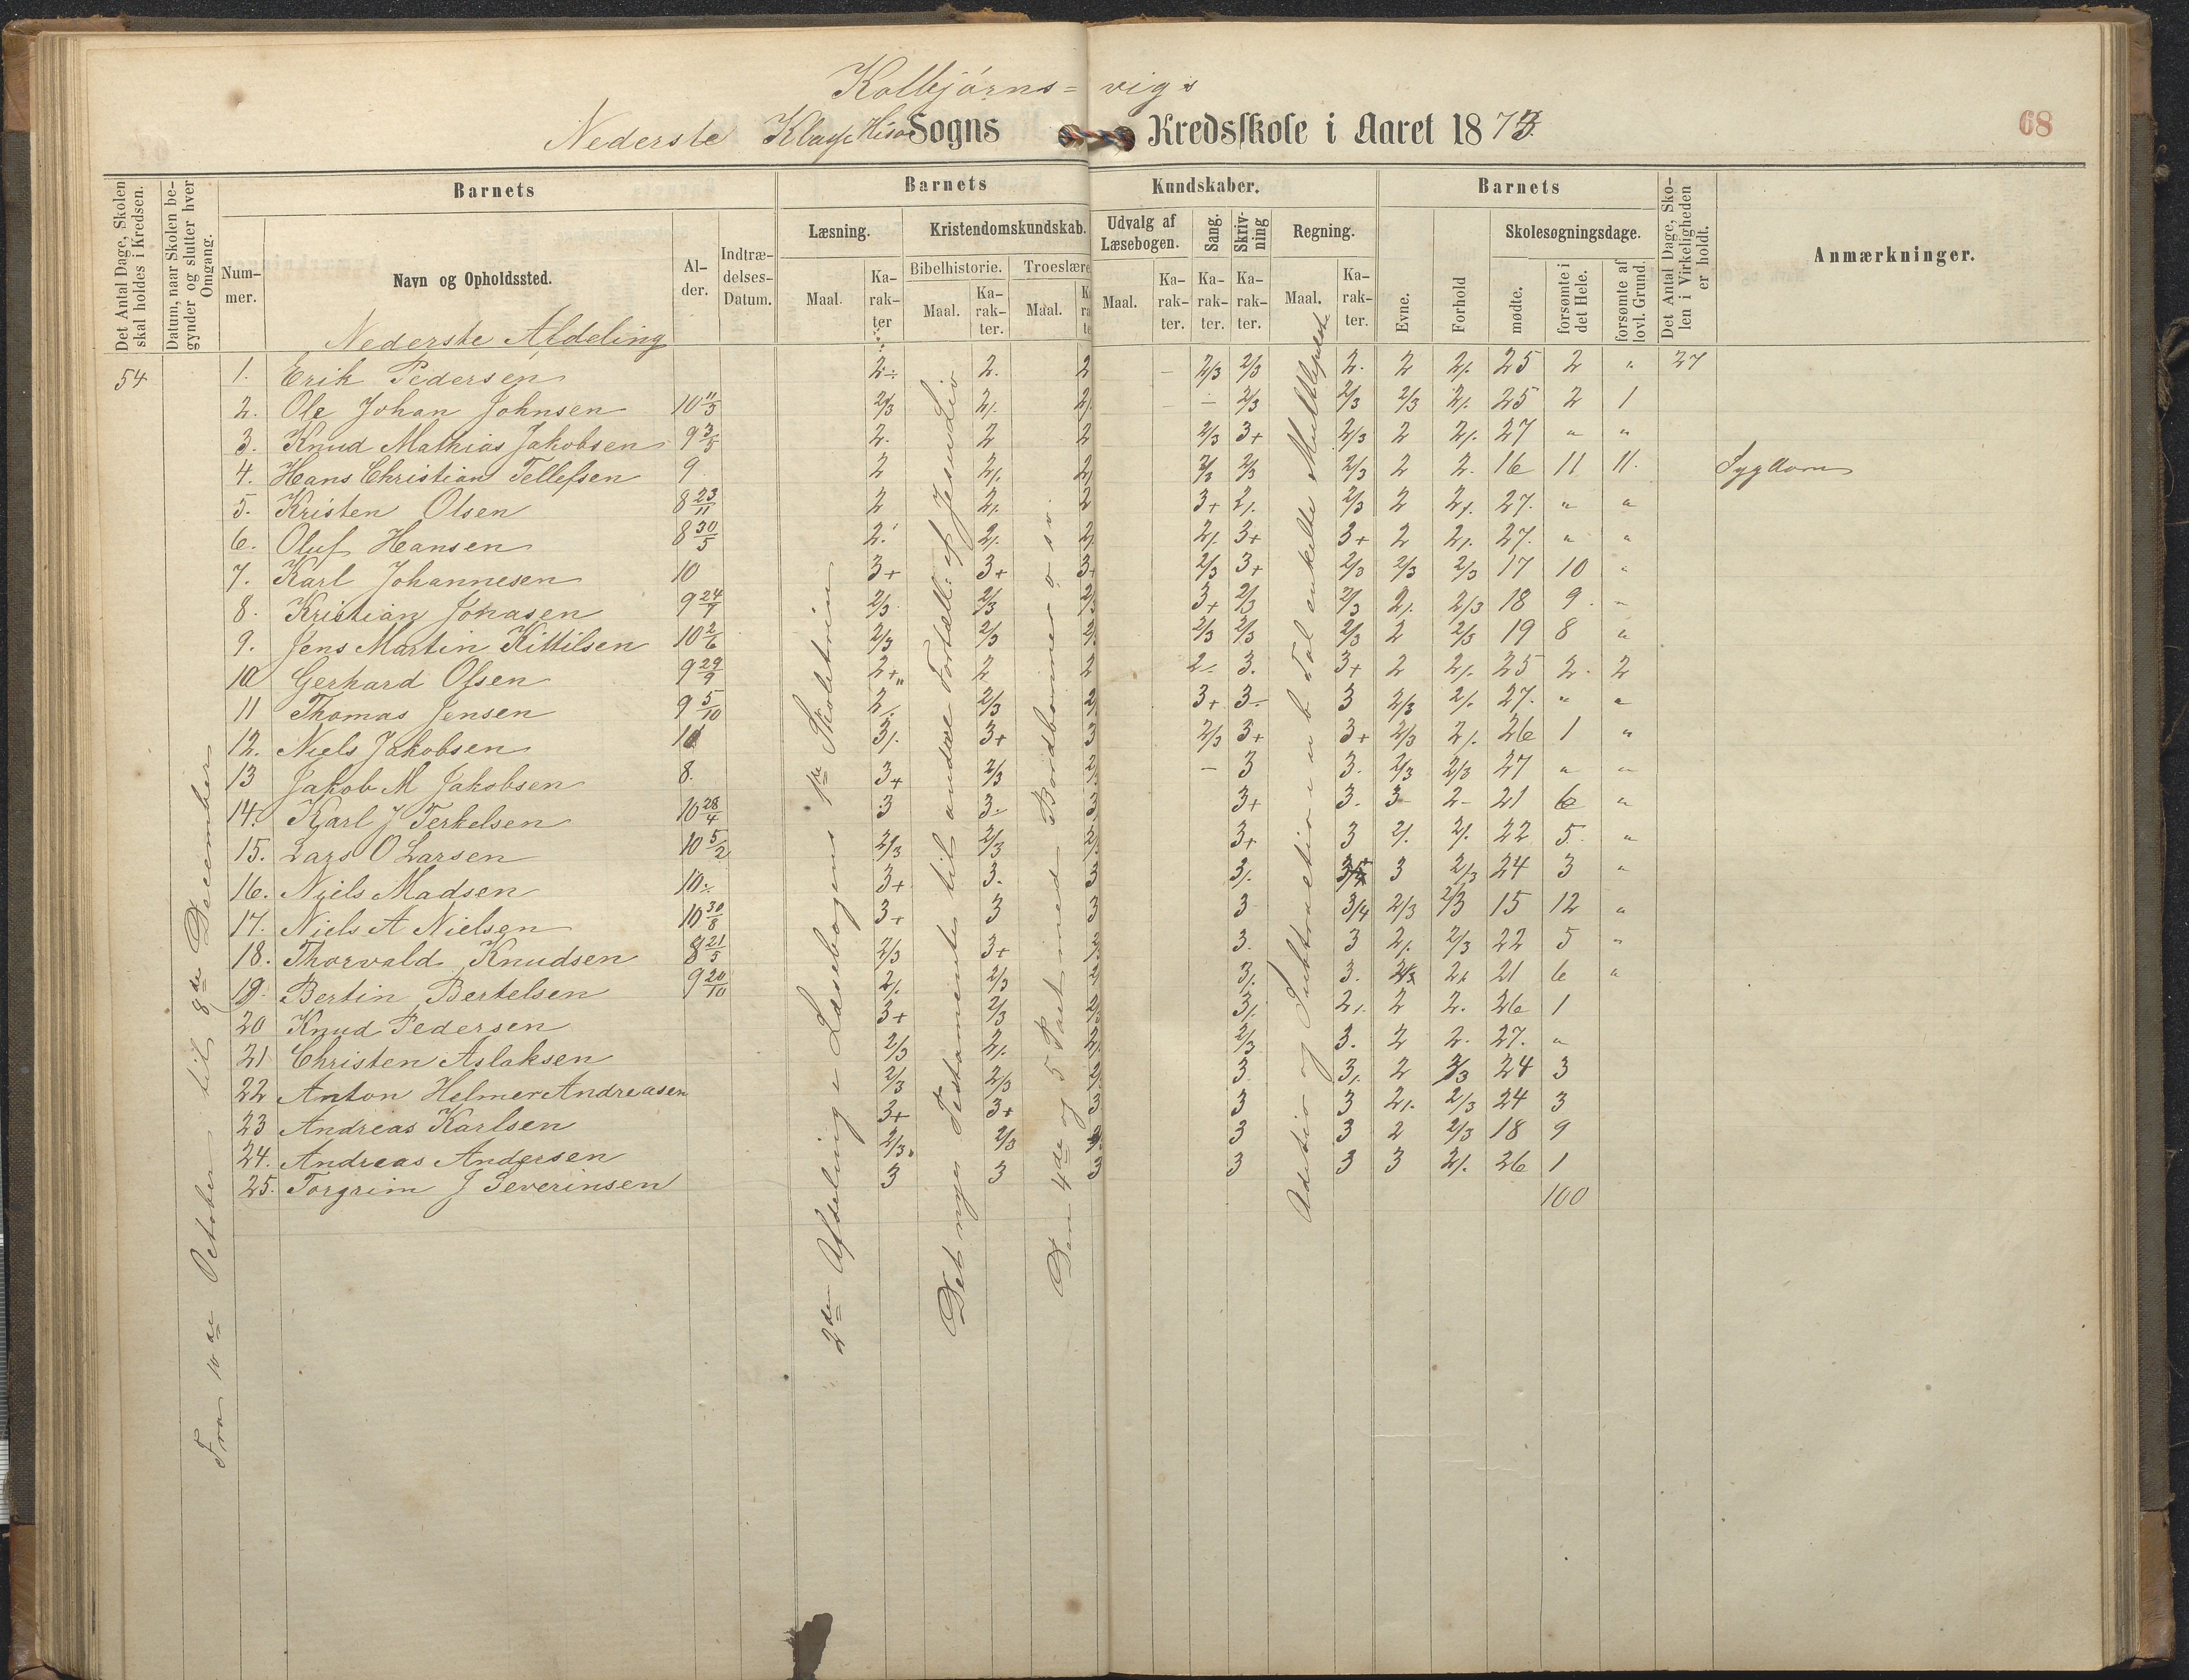 Kolbjørns= vigs
Nederste Klasse Hisø Sogns Kredsskole i Aaret 1873.
68
Det Antal Dage, Skolen skal holdes i Kredsen.
Datum, naar Skolen begynder og slutter hver Omgang.
Barnets
Nummer.
Navn og Opholdssted.
Alder.
Indtrædelses-Datum.
Barnets Kundskaber.
Læsning.
Maal.
Karakter
Kristendomskundskab.
Bibelhistorie.
Maal.
Karakter.
Troeslære
Maal.
Udvalg af Læsebogen.
Maal.
Karakter.
Sang.
Karakter.
Skrivning
Karakter.
Regning.
Maal.
Karakter.
Barnets
Evne.
Forhold
Skolesøgningsdage.
mødte.
forsømte i det Hele.
forsømte af lovl. Grund.
Det Antal Dage, Skolen i Virkeligheden er holdt.
Anmærkninger.
Nederste Afdeling
54 1. Erik Pedersen 2÷ 2. 2 - 2/3 2/3 2. 2 2/. 25 2 " 27
2. Ole Johan Johnsen 10 11/3 2/3 2/. 2/. - - 2/3 2/3 2/3 2/. 25 2 1
3. Knud Mathias Jakobsen 9 3/5 2. 2 2 2/3 3+ 2/3 2 2/. 27 " "
4. Hans Christian Tellefsen 9 2 2/. 2/. 2/3 2/3 2/3 2 2. 16 11 11. Sygdom
5. Kristen Olsen 8 23/11 2 2/. 2 3+ 2/. 2/3 2 2/. 27. " "
6. Oluf Hansen 8 30/5 2. 2/. 2/. 2/. 3+ 3+ 2 2/. 27. " "
7. Karl Johannesen 10 3+ 3+ 3+ 2/3 3+ 2/3 2/3 2/3 17 10 "
8. Kristian Jonasen 9 24/7 2/3 2/3 2/3 3+ 2/3 2/3 2/. 2/3 18 9. "
9. Jens Martin Kittilsen 10 2/6 2/3 2/3 2/. 2/3 2/3 2/3 2 2/3 19 8 "
10 Gerhard Olsen 9 29/9 2+ 2 2 2/. 3. 3+ 2 2/. 25 2. 2
11 Thomas Jensen 9 5/10 2/. 2/3 2/. 3+ 3- 3 2/3 2/. 27. " "
12. Niels Jakobsen 3/. 3+ 3 2/3 3+ 3+ 2/3 2/. 26 1 "
13 Jakob M Jakobsen 8. 3+ 2/3 2/. - 3 3. 2/3 2/3 27 " "
14. Karl J Terkelsen 10 28/4 3 3- 3 3+ 3. 3- 2- 21 6 "
15. Lars O Larsen 10 5/2 2/3 2/3 2/. 3+ 3 2/. 2/. 22 5. "
16. Niels Madsen 10÷ 3+ 3. 3 3/. 3 2/3 24 3 "
17. Niels A Nielsen 10 30/8 3+ 3 3 3 3/4 2/3 2/3 15 12 "
18. Thorvald Knudsen 8 21/5 2/3 3+ 2/. 3. 3 2/. 2/3 22 5 "
19. Bertin Bertelsen 9 20/10 2/. 2/3 2/. 3/. 3. 2/3 2/. 21 6 "
20 Knud Pedersen 3+ 2/3 2/3 3/. 2/. 2 2. 26 1
21 Christen Aslaksen 2/3 2/. 2/. 2/3 3. 2 2. 27. "
22 Anton Helmer Andreasen 2/3 2/3 2/. 3. 3/. 2 2/3 24 3
23 Andreas Karlsen 3+ 3+ 3 3 3 2/. 2/3 24 3
24. Andreas Andersen 2/3. 2/3 3 3 2 2/3 18 9
25. Torgrim J Severinsen 3 3 3 3 3 3 2/. 26 1
100
Fra 10de October til 8de December
2den Afdeling i Læsebogens 1ste Skoletrin
Det nye Testamente til andre Fortælli: af Jesu Liv
Den 4de og 5 Part med Bordbønner o. sv.
Adetion og Subtraction i u b Tal enkelte Multiplicat